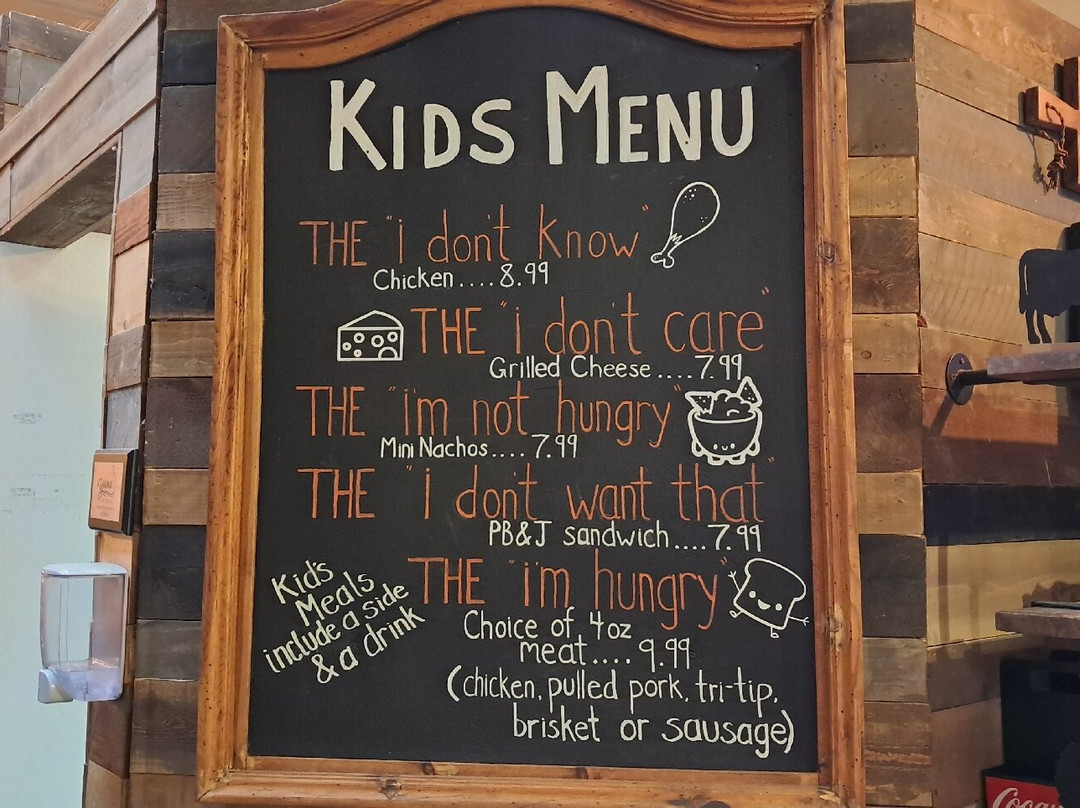 KIDS MENU
THE "i don't know"
Chicken....8.99
THE "i don't care"
Grilled Cheese....7.99
THE "i'm not hungry"
Mini Nachos....7.99
THE "I don't want that"
PB&J sandwich....7.99
THE "i'm hungry"
Choice of 4oz
meat....9.99
(chicken, pulled pork, tri-tip,
brisket or sausage)
Kid's
Meals
include a side
& a drink